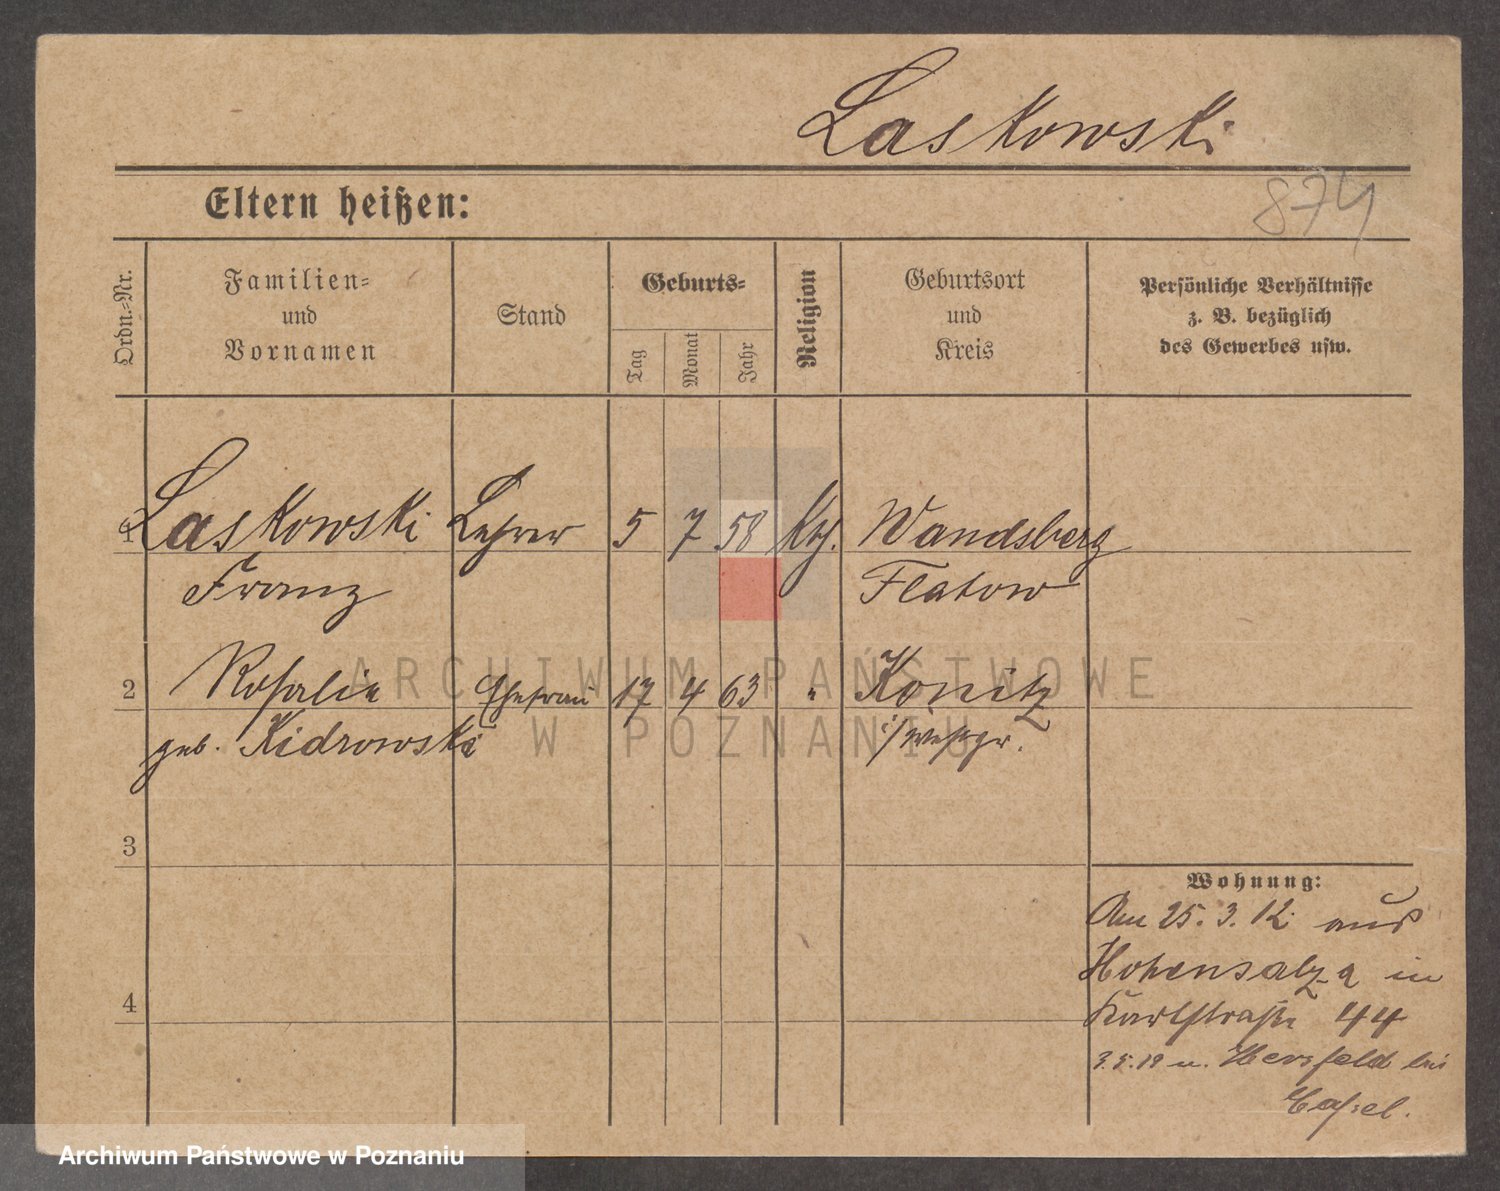 Laskowski
874
Eltern heißen:
Ordn.-Nr.
Familien-
und
Vornamen
Stand
Geburts-
Tag
Monat
Jahr
Religion
Geburtsort
und
Kreis
Persönliche Verhältnisse
z. B. bezüglich
des Gewerbes usw.
1 Laskowski Lehrer 5 7 58 kth. Wandsberg
Franz Flatow
2 Rosalie Ehefrau 17 4 63 " Konitz
geb. Kidrowski i/Westpr.
3
4
Wohnung:
Am 25.3.12. aus
Hohensalza in
Karlstraße 44
3.5.19 n. Hersfeld bei
Cassel.
ARCHIWUM PAŃSTWOWE
W POZNANIU
Archiwum Państwowe w Poznaniu